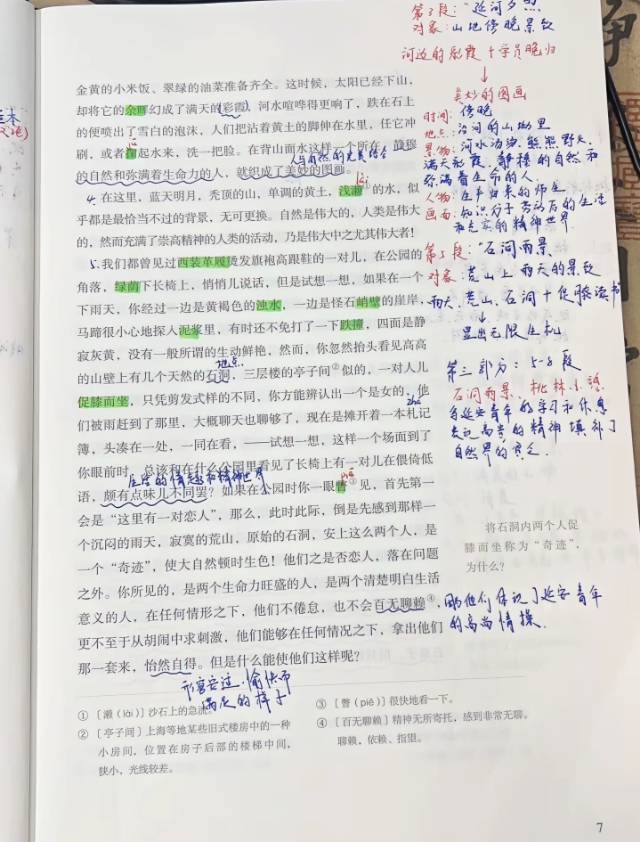 第3段：“延河夕照
对象：山地傍晚景致
河边的彤霞＋学员晚归
↓
美妙的图画
时间：傍晚
地点：沿河的山坳里
人物：生产归来的师生
金黄的小米饭、翠绿的油菜准备齐全。这时候，太阳已经下山，
却将它的余晖幻成了满天的彩霞，河水喧哗得更响了，跌在石上
的便喷出了雪白的泡沫，人们把沾着黄土的脚伸在水里，任它冲
刷，或者掬起水来，洗一把脸。在背山面水这样一个所在，静穆
人与自然的完美结合
的自然和弥满着生命力的人，就织成了美妙的图画。
4. 在这里，蓝天明月，秃顶的山，单调的黄土，浅濑①的水，似
乎都是最恰当不过的背景，无可更换。自然是伟大的，人类是伟大
的，然而充满了崇高精神的人类的活动，乃是伟大中之尤其伟大者！
第5段：“石洞雨景
对象：荒山上雨天的景致
雨天、荒山、石洞＋促膝读书
↓
显出无限生机
5. 我们都曾见过西装革履烫发旗袍高跟鞋的一对儿，在公园的
角落，绿荫下长椅上，悄悄儿说话，但是试想一想，如果在一个
下雨天，你经过一边是黄褐色的浊水，一边是怪石峭壁的崖岸，
马蹄很小心地探入泥浆里，有时还不免打了一下跌撞，四面是静
寂灰黄，没有一般所谓的生动鲜艳，然而，你忽然抬头看见高高
地点
的山壁上有几个天然的石洞，三层楼的亭子间②似的，一对人儿
促膝而坐，只凭剪发式样的不同，你方能辨认出一个是女的，他
们被雨赶到了那里，大概聊天也聊够了，现在是摊开着一本札记
簿，头凑在一处，一同在看，——试想一想，这样一个场面到了
你眼前时，总该和在什么公园里看见了长椅上有一对儿在偎倚低
语，颇有点味儿不同罢？如果在公园时你一眼瞥③见，首先第一
会是“这里有一对恋人”，那么，此时此际，倒是先感到那样一
个沉闷的雨天，寂寞的荒山，原始的石洞，安上这么两个人，是
一个“奇迹”，使大自然顿时生色！他们之是否恋人，落在问题
之外。你所见的，是两个生命力旺盛的人，是两个清楚明白生活
意义的人，在任何情形之下，他们不倦怠，也不会百无聊赖④，
更不至于从胡闹中求刺激，他们能够在任何情况之下，拿出他们
那一套来，怡然自得。但是什么能使他们这样呢？
形容安适、愉快而
满足的样子
第二部分：5-8段
石洞雨景、桃林小憩
写延安青年的学习和休息
表现高贵的精神填补了
自然界的贫乏
将石洞内两个人促
膝而坐称为“奇迹”，
为什么？
因为他们体现了延安青年
的高尚情操
①［濑（lài）］沙石上的急流。
②［亭子间］上海等地某些旧式楼房中的一种
小房间，位置在房子后部的楼梯中间，
狭小，光线较差。
③［瞥（piē）］很快地看一下。
④［百无聊赖］精神无所寄托，感到非常无聊。
聊赖，依赖、指望。
7